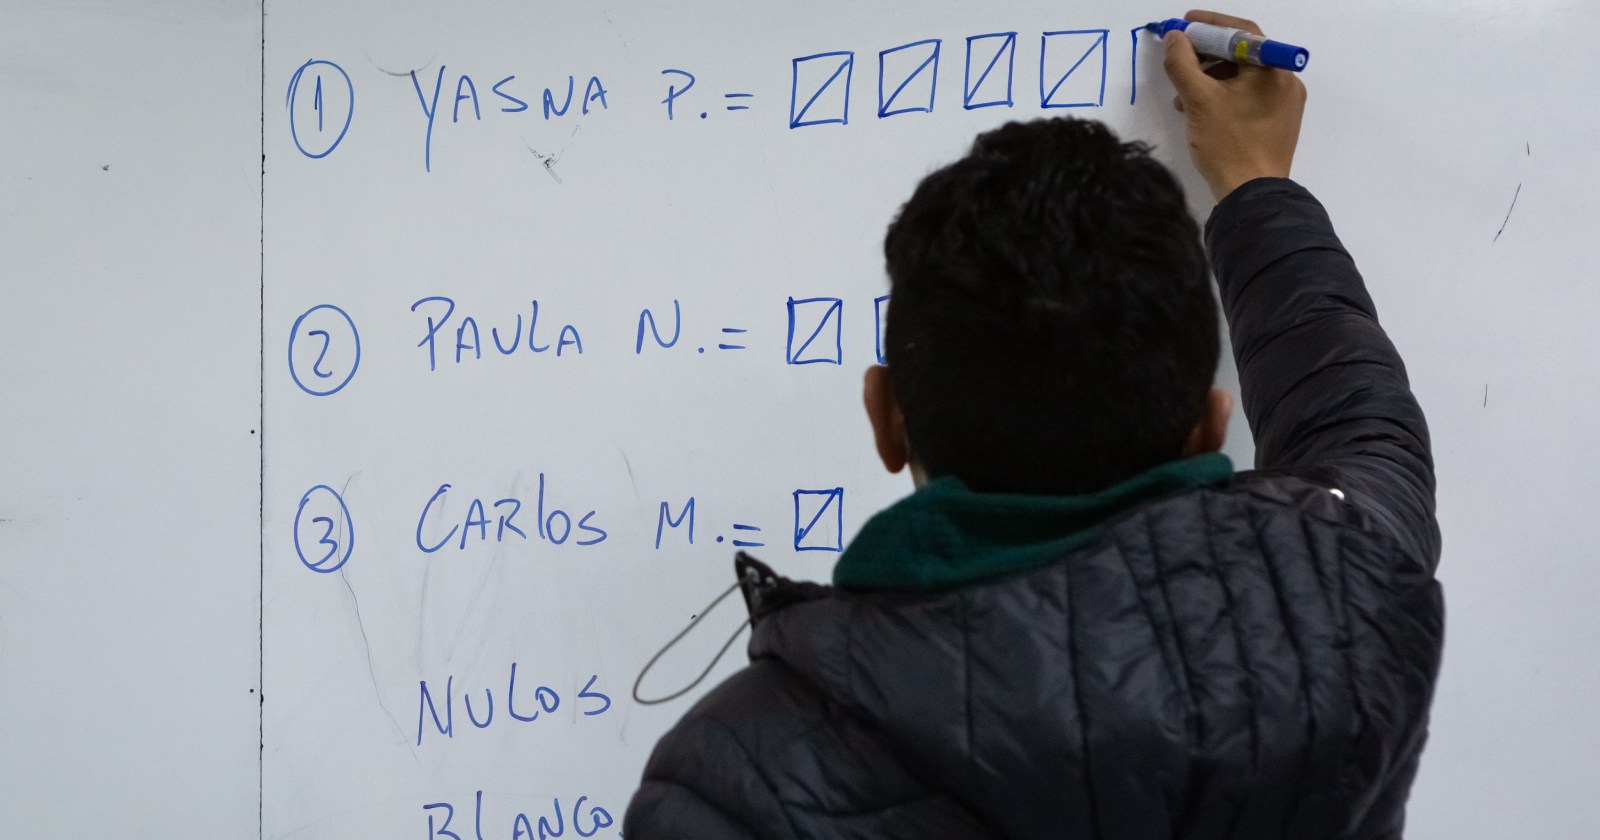 1 YASNA P. =
2 PAULA N. =
3 CARLOS M. =
NULOS
BLANCO